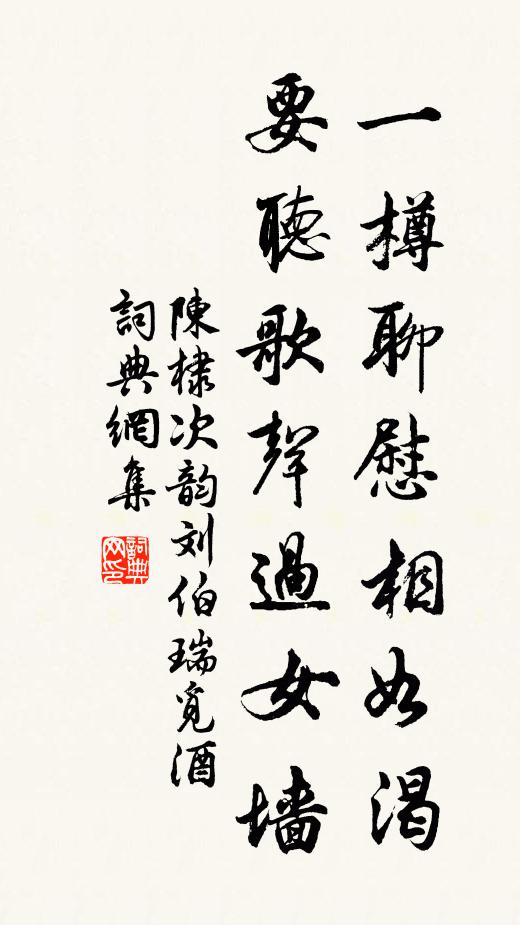 一樽聊慰相如渴
要聽歌聲過女墻
陳棣次韵刘伯瑞覓酒
詞典網集
詞典网印